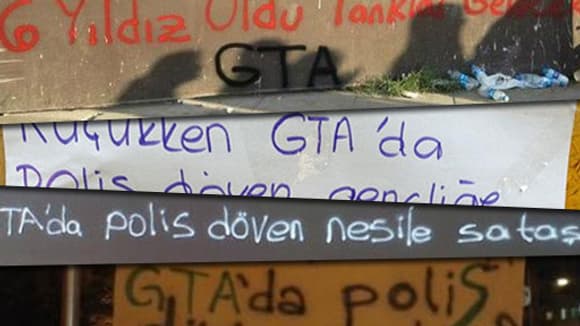 6 Yıldız Oldu Tankları Bekle
GTA
Küçükken GTA'da
Polis döven gençliğe
TA'da polis döven nesile sataş
GTA'da polis